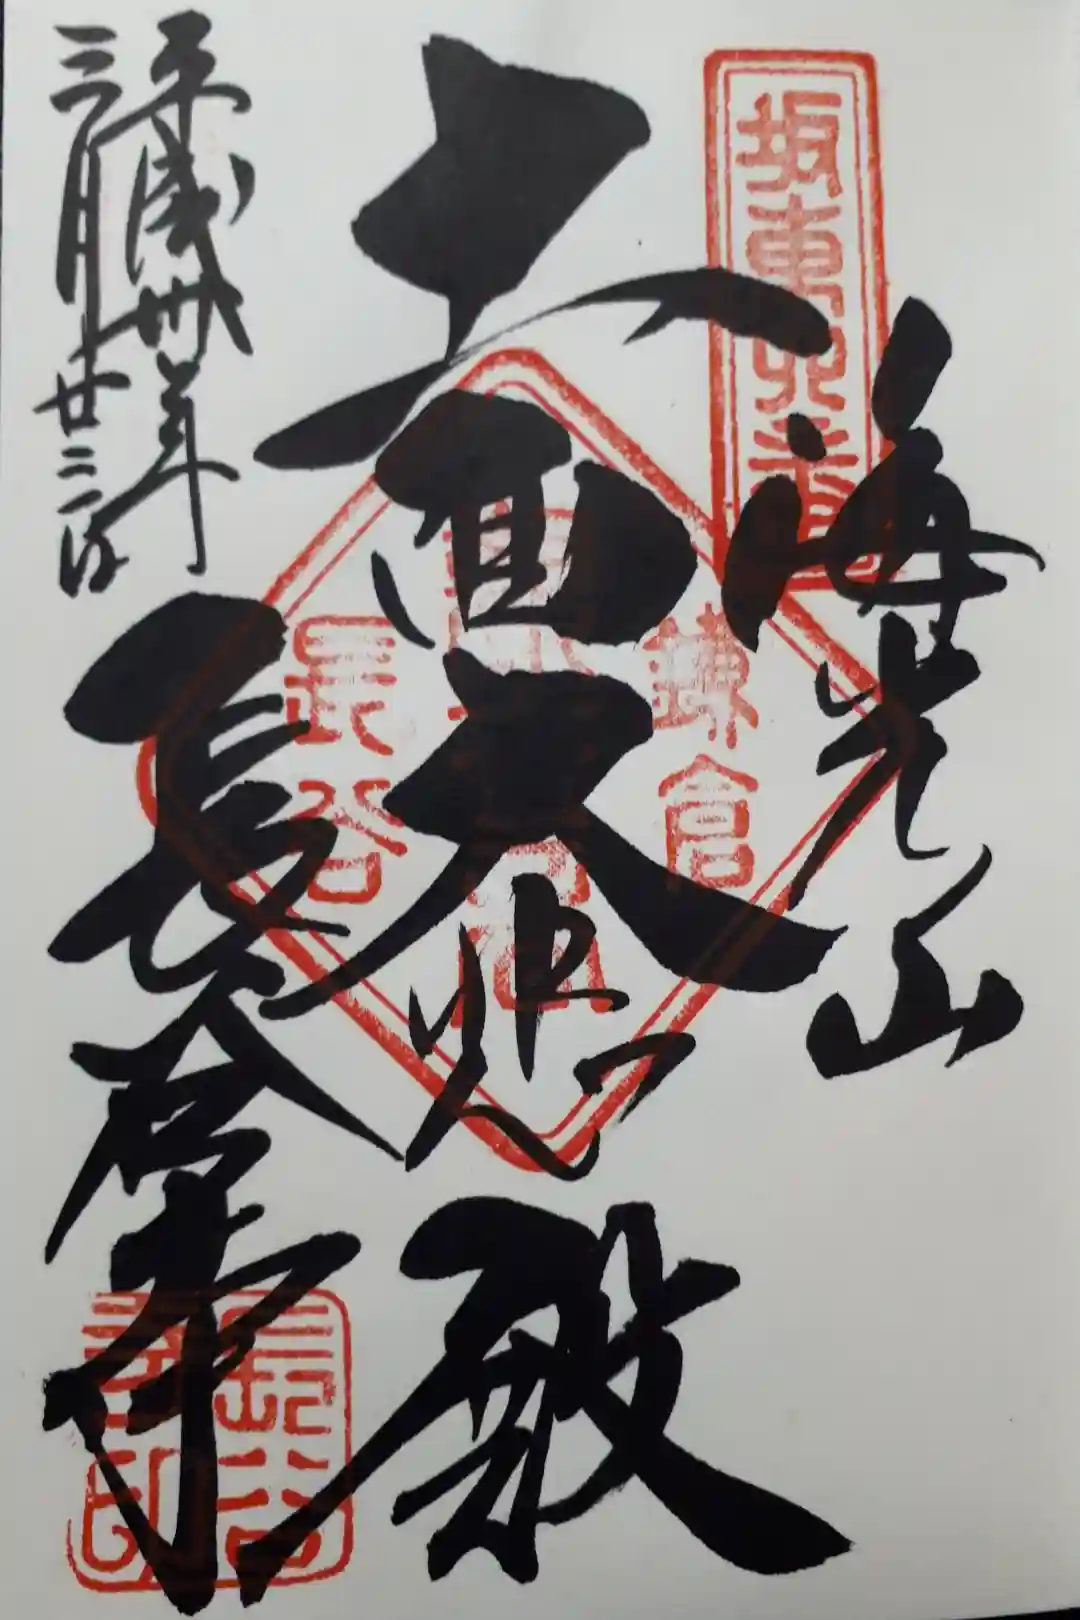 坂東四番
海光山
十一面大悲殿
鎌倉
長谷
長谷寺
長谷寺印
平成卅年
三月廿二日